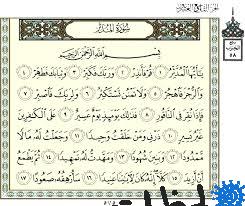 سُورَةُ المُدَّثِّر
بِسْمِ اللَّهِ الرَّحْمَٰنِ الرَّحِيمِ
يَا أَيُّهَا الْمُدَّثِّرُ ١ قُمْ فَأَنذِرْ ٢ وَرَبَّكَ فَكَبِّرْ ٣ وَثِيَابَكَ فَطَهِّرْ ٤
وَالرُّجْزَ فَاهْجُرْ ٥ وَلَا تَمْنُن تَسْتَكْثِرُ ٦ وَلِرَبِّكَ فَاصْبِرْ ٧
فَإِذَا نُقِرَ فِي النَّاقُورِ ٨ فَذَٰلِكَ يَوْمَئِذٍ يَوْمٌ عَسِيرٌ ٩ عَلَى الْكَافِرِينَ
غَيْرُ يَسِيرٍ ١٠ ذَرْنِي وَمَنْ خَلَقْتُ وَحِيدًا ١١ وَجَعَلْتُ لَهُ مَالًا
مَّمْدُودًا ١٢ وَبَنِينَ شُهُودًا ١٣ وَمَهَّدتُّ لَهُ تَمْهِيدًا ١٤ ثُمَّ يَطْمَعُ
أَنْ أَزِيدَ ١٥ كَلَّا إِنَّهُ كَانَ لِآيَاتِنَا عَنِيدًا ١٦ سَأُرْهِقُهُ صَعُودًا ١٧